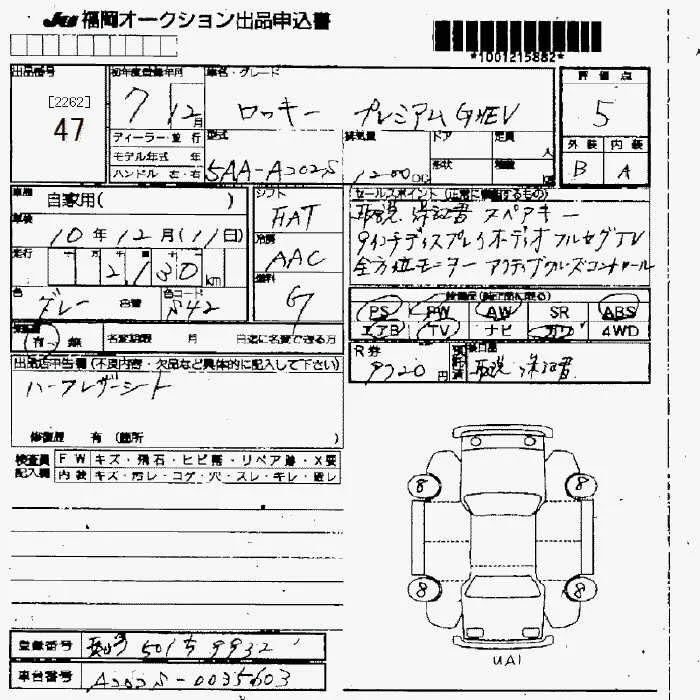 JU 福岡オークション出品申込書
*1001215882*
出品番号
[2262]
47
初年度登録年月
7 12月
車名・グレード
ロッキー プレミアムG HEV
評価点
5
外装 内装
B A
ディーラー・並行
モデル年式 年
ハンドル 左・右
型式
5AA-A202S
排気量
1200CC
ドア
形状
定員
人
車歴
自家用( )
車検
10年12月(11日)
走行
2,130km
色
グレー
色コード
S42
シフト
FAT
冷房
AAC
燃料
G
セールスポイント(正常に作動するもの)
取説 保証書 スペアキー
9インチディスプレイオーディオ フルセグTV
全方位モニター アクティブクルーズコントロール
PS PW AW SR ABS
エアB TV ナビ カワ 4WD
有・無 名変期限 月 日迄に名変できる方
R券
円
後日品
取説、保証書
出品店申告欄(不良内容・欠品など具体的に記入して下さい)
ハーフレザーシート
修復歴 有(箇所 )
検査員記入欄
FW キズ・飛石・ヒビ割・リペア跡・X要
内装 キズ・汚レ・コゲ・穴・スレ・キレ・破レ
8 8
8 8
UAI
登録番号
501 9932
車台番号
A202S-0035603